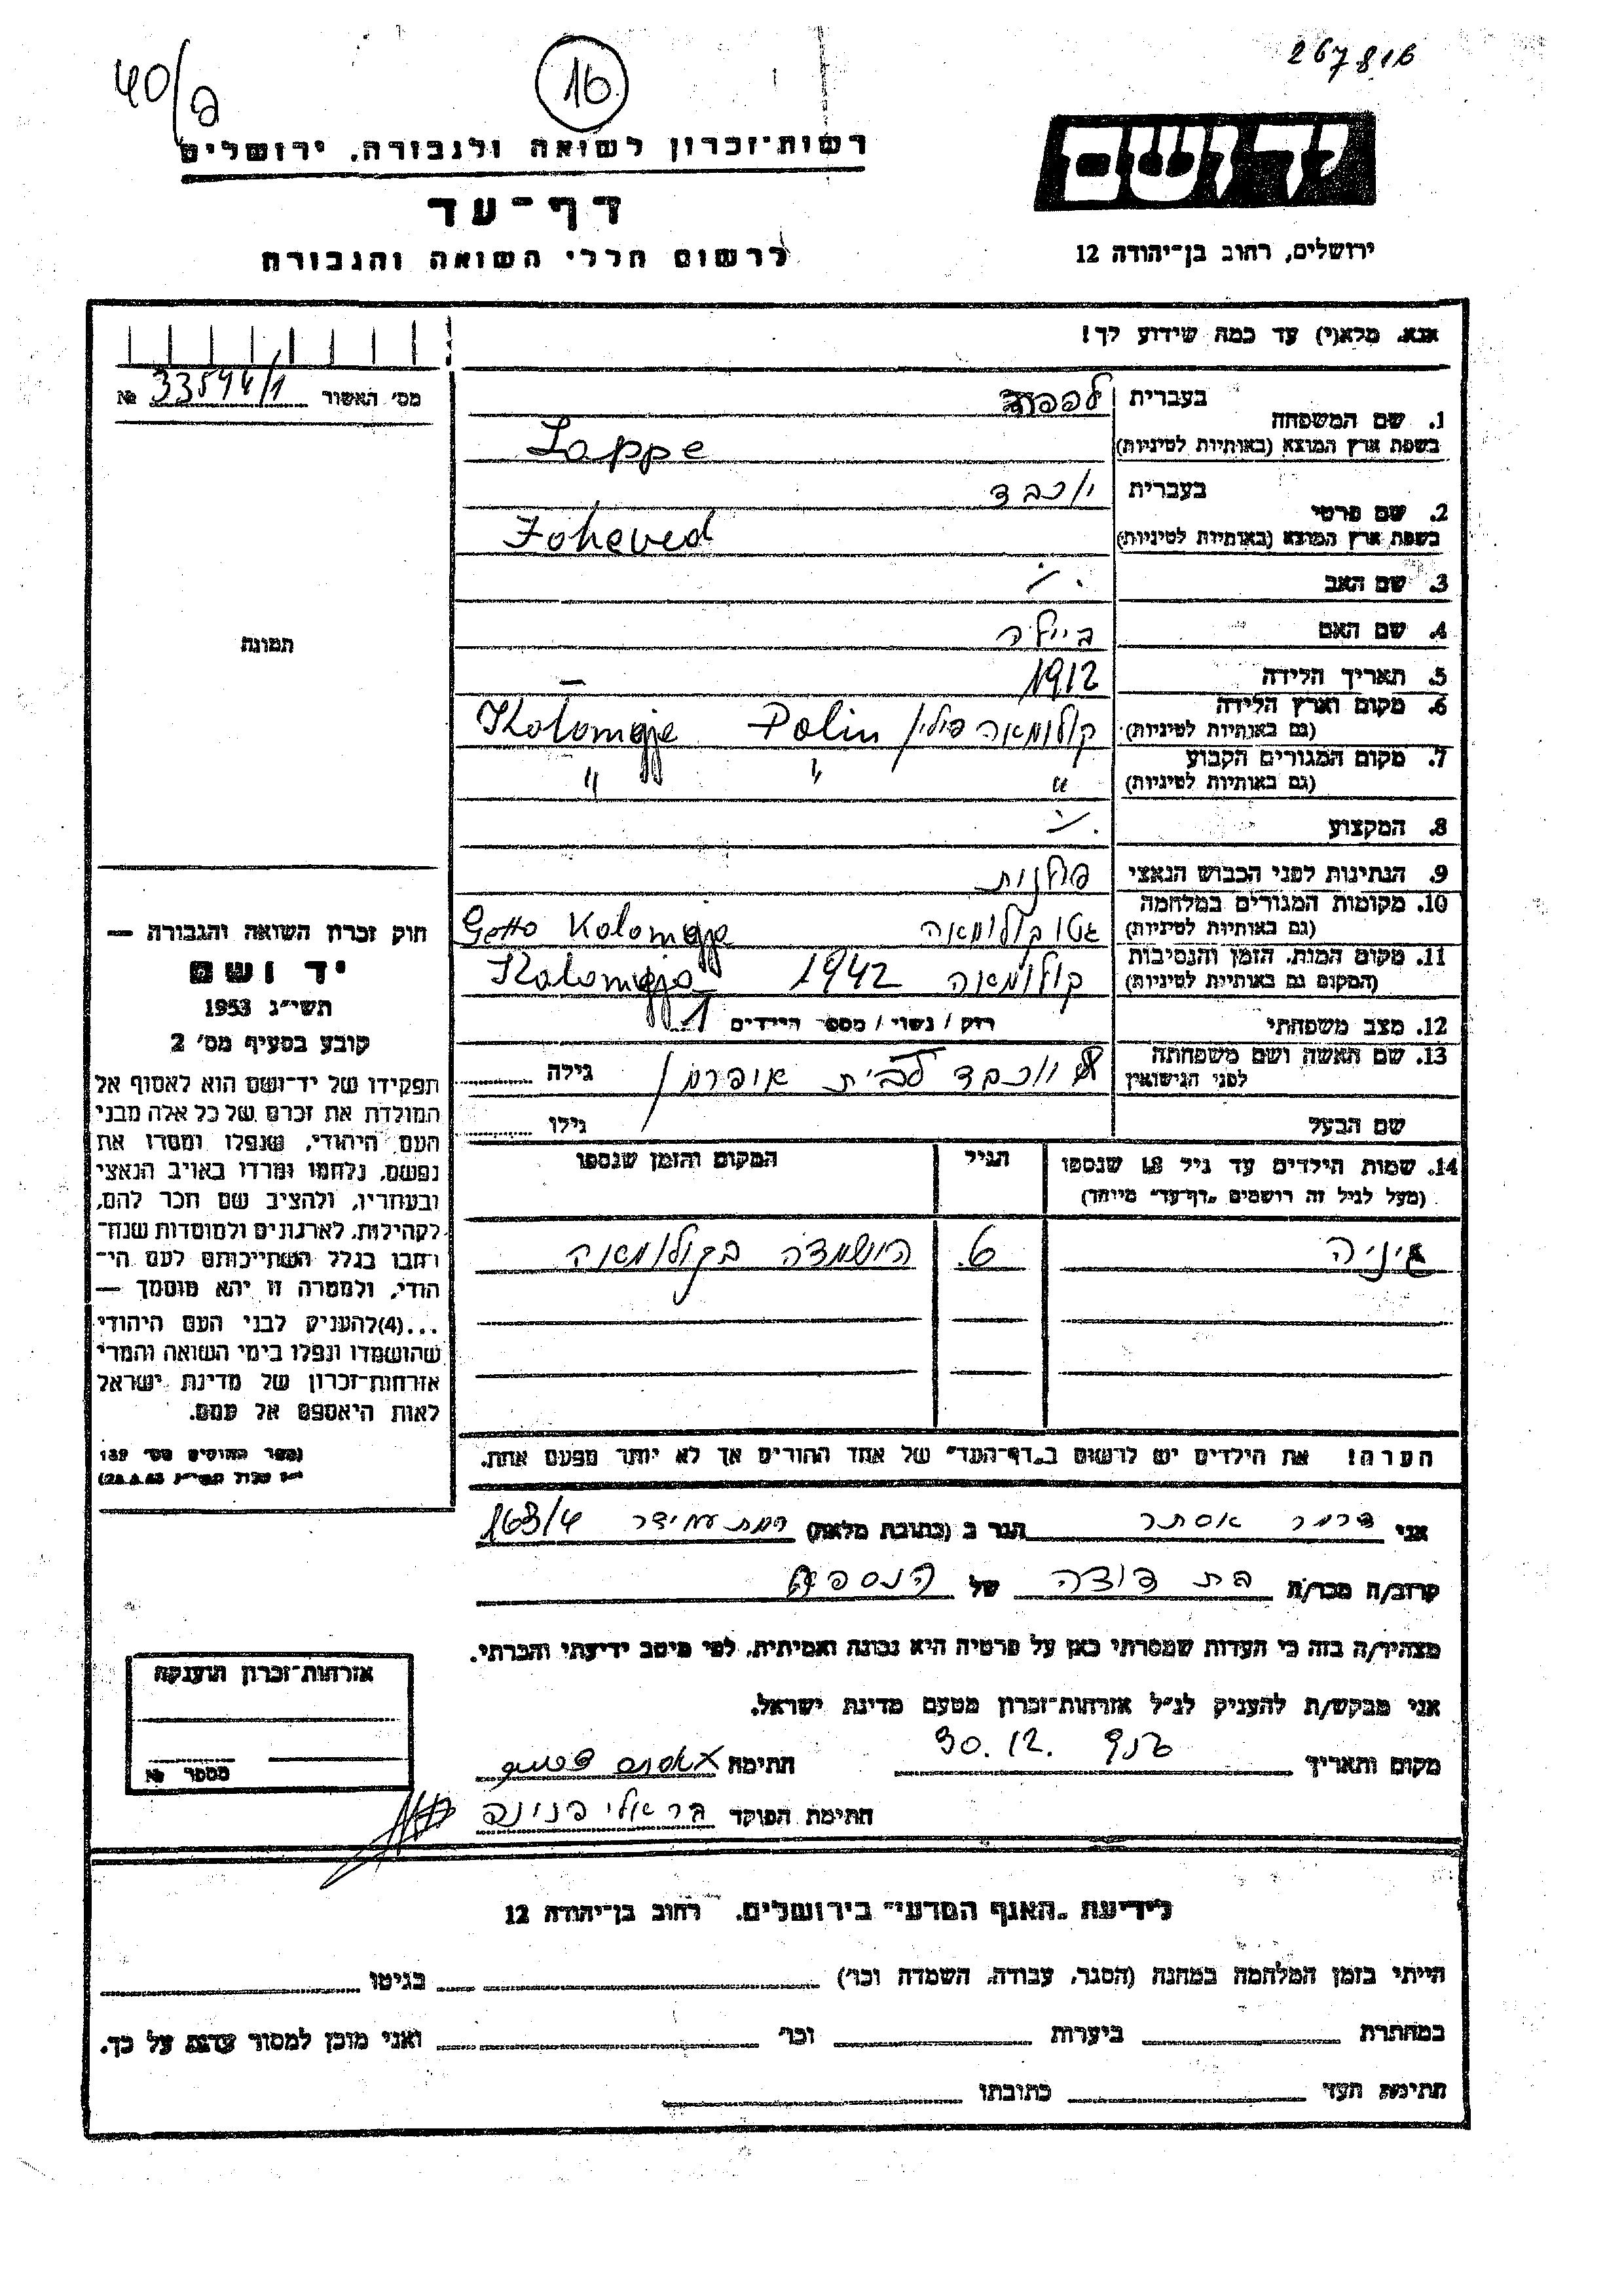 40/ב
16
267816
רשות־זכרון לשואה ולגבורה, ירושלים
דף־עד
לרשום חללי השואה והגבורה
יד ושם
ירושלים, רחוב בן־יהודה 12
אנא, מלא(י) עד כמה שידוע לך!
מס' האשור № 33594/1
תמונה
1. שם המשפחה בעברית לפפה
בשפת ארץ המוצא (באותיות לטיניות) Lappe
2. שם פרטי בעברית יוכבד
בשפת ארץ המוצא (באותיות לטיניות) Joheved
3. שם האב
4. שם האם ביילה
5. תאריך הלידה 1912 —
6. מקום וארץ הלידה (גם באותיות לטיניות) קולומאה פולין Polin Kolomeje
7. מקום המגורים הקבוע (גם באותיות לטיניות) " " "
8. המקצוע
9. הנתינות לפני הכבוש הנאצי פולנית
10. מקומות המגורים במלחמה (גם באותיות לטיניות) גטו קולומאה Getto Kolomeje
11. מקום המות, הזמן והנסיבות (המקום גם באותיות לטיניות) קולומאה 1942 Kolomeja
12. מצב משפחתי רווק / נשוי / מספר הילדים 1
13. שם האשה ושם משפחתה לפני הנישואין יוכבד לבית אופרמן גילה
שם הבעל גילו
14. שמות הילדים עד גיל 18 שנספו (מעל לגיל זה רושמים "דף־עד" מיוחד) הגיל המקום והזמן שנספו
ג'יניה 6. הושמדה בקולומאה
הערה! את הילדים יש לרשום ב"דף־העד" של אחד ההורים אך לא יותר מפעם אחת.
חוק זכרון השואה והגבורה —
יד ושם
תשי"ג 1953
קובע בסעיף מס' 2
תפקידו של יד־ושם הוא לאסוף אל
המולדת את זכרם של כל אלה מבני
העם היהודי, שנפלו ומסרו את
נפשם, נלחמו ומרדו באויב הנאצי
ובעוזריו, ולהציב שם וזכר להם,
לקהילות, לארגונים ולמוסדות שנח־
רבו בגלל השתייכותם לעם הי־
הודי, ולמטרה זו יהא מוסמך —
...(4)להעניק לבני העם היהודי
שהושמדו ונפלו בימי השואה והמרי
אזרחות־זכרון של מדינת ישראל
לאות היאספם אל עמם.
(ספר החוקים מס' 132
אני אסתר הגר ב (כתובת מלאה) רמת עמידר 163/4
קרוב/ה מכר/ה בת דודה של הנספה
מצהיר/ה בזה כי העדות שמסרתי כאן על פרטיה היא נכונה ואמיתית, לפי מיטב ידיעתי והכרתי.
אני מבקש/ת להעניק לנ"ל אזרחות־זכרון מטעם מדינת ישראל.
מקום ותאריך 30.12. חתימה
חתימת הפוקד בר אולי פנינה
אזרחות־זכרון הוענקה
מספר №
לידיעת "האגף המדעי" בירושלים, רחוב בן־יהודה 12
הייתי בזמן המלחמה במחנה (הסגר, עבודה, השמדה וכו') בגיטו
במחתרת ביערות וכו' ואני מוכן למסור עדות על כך.
חתימת העד כתובתו